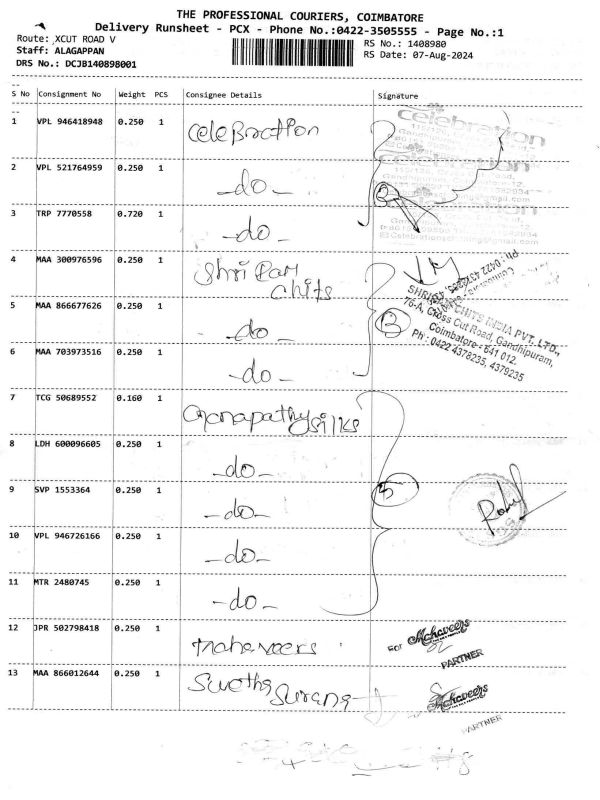 THE PROFESSIONAL COURIERS, COIMBATORE
Delivery Runsheet - PCX - Phone No.:0422-3505555 - Page No.:1
Route: XCUT ROAD V
RS No.: 1408980
Staff: ALAGAPPAN
RS Date: 07-Aug-2024
DRS No.: DCJB140898001
S No Consignment No Weight PCS Consignee Details Signature
1 VPL 946418948 0.250 1 Celebration
celebration
2 VPL 521764959 0.250 1 -do-
celebration
3 TRP 7770558 0.720 1 -do-
4 MAA 300976596 0.250 1 Shri Ram
chits
5 MAA 866677626 0.250 1 -do-
3
SHRIRAM CHITS INDIA PVT. LTD.,
76-A, Cross Cut Road, Gandhipuram,
Coimbatore - 641 012.
Ph : 0422 4378235, 4379235
6 MAA 703973516 0.250 1 -do-
7 TCG 50689552 0.160 1 Ganapathy silks
8 LDH 600096605 0.250 1 -do-
9 SVP 1553364 0.250 1 -do-
5
10 VPL 946726166 0.250 1 -do-
11 MTR 2480745 0.250 1 -do-
12 JPR 502798418 0.250 1 mahaveers
For Mahaveers
PARTNER
13 MAA 866012644 0.250 1 Swetha
Surana
Mahaveers
PARTNER